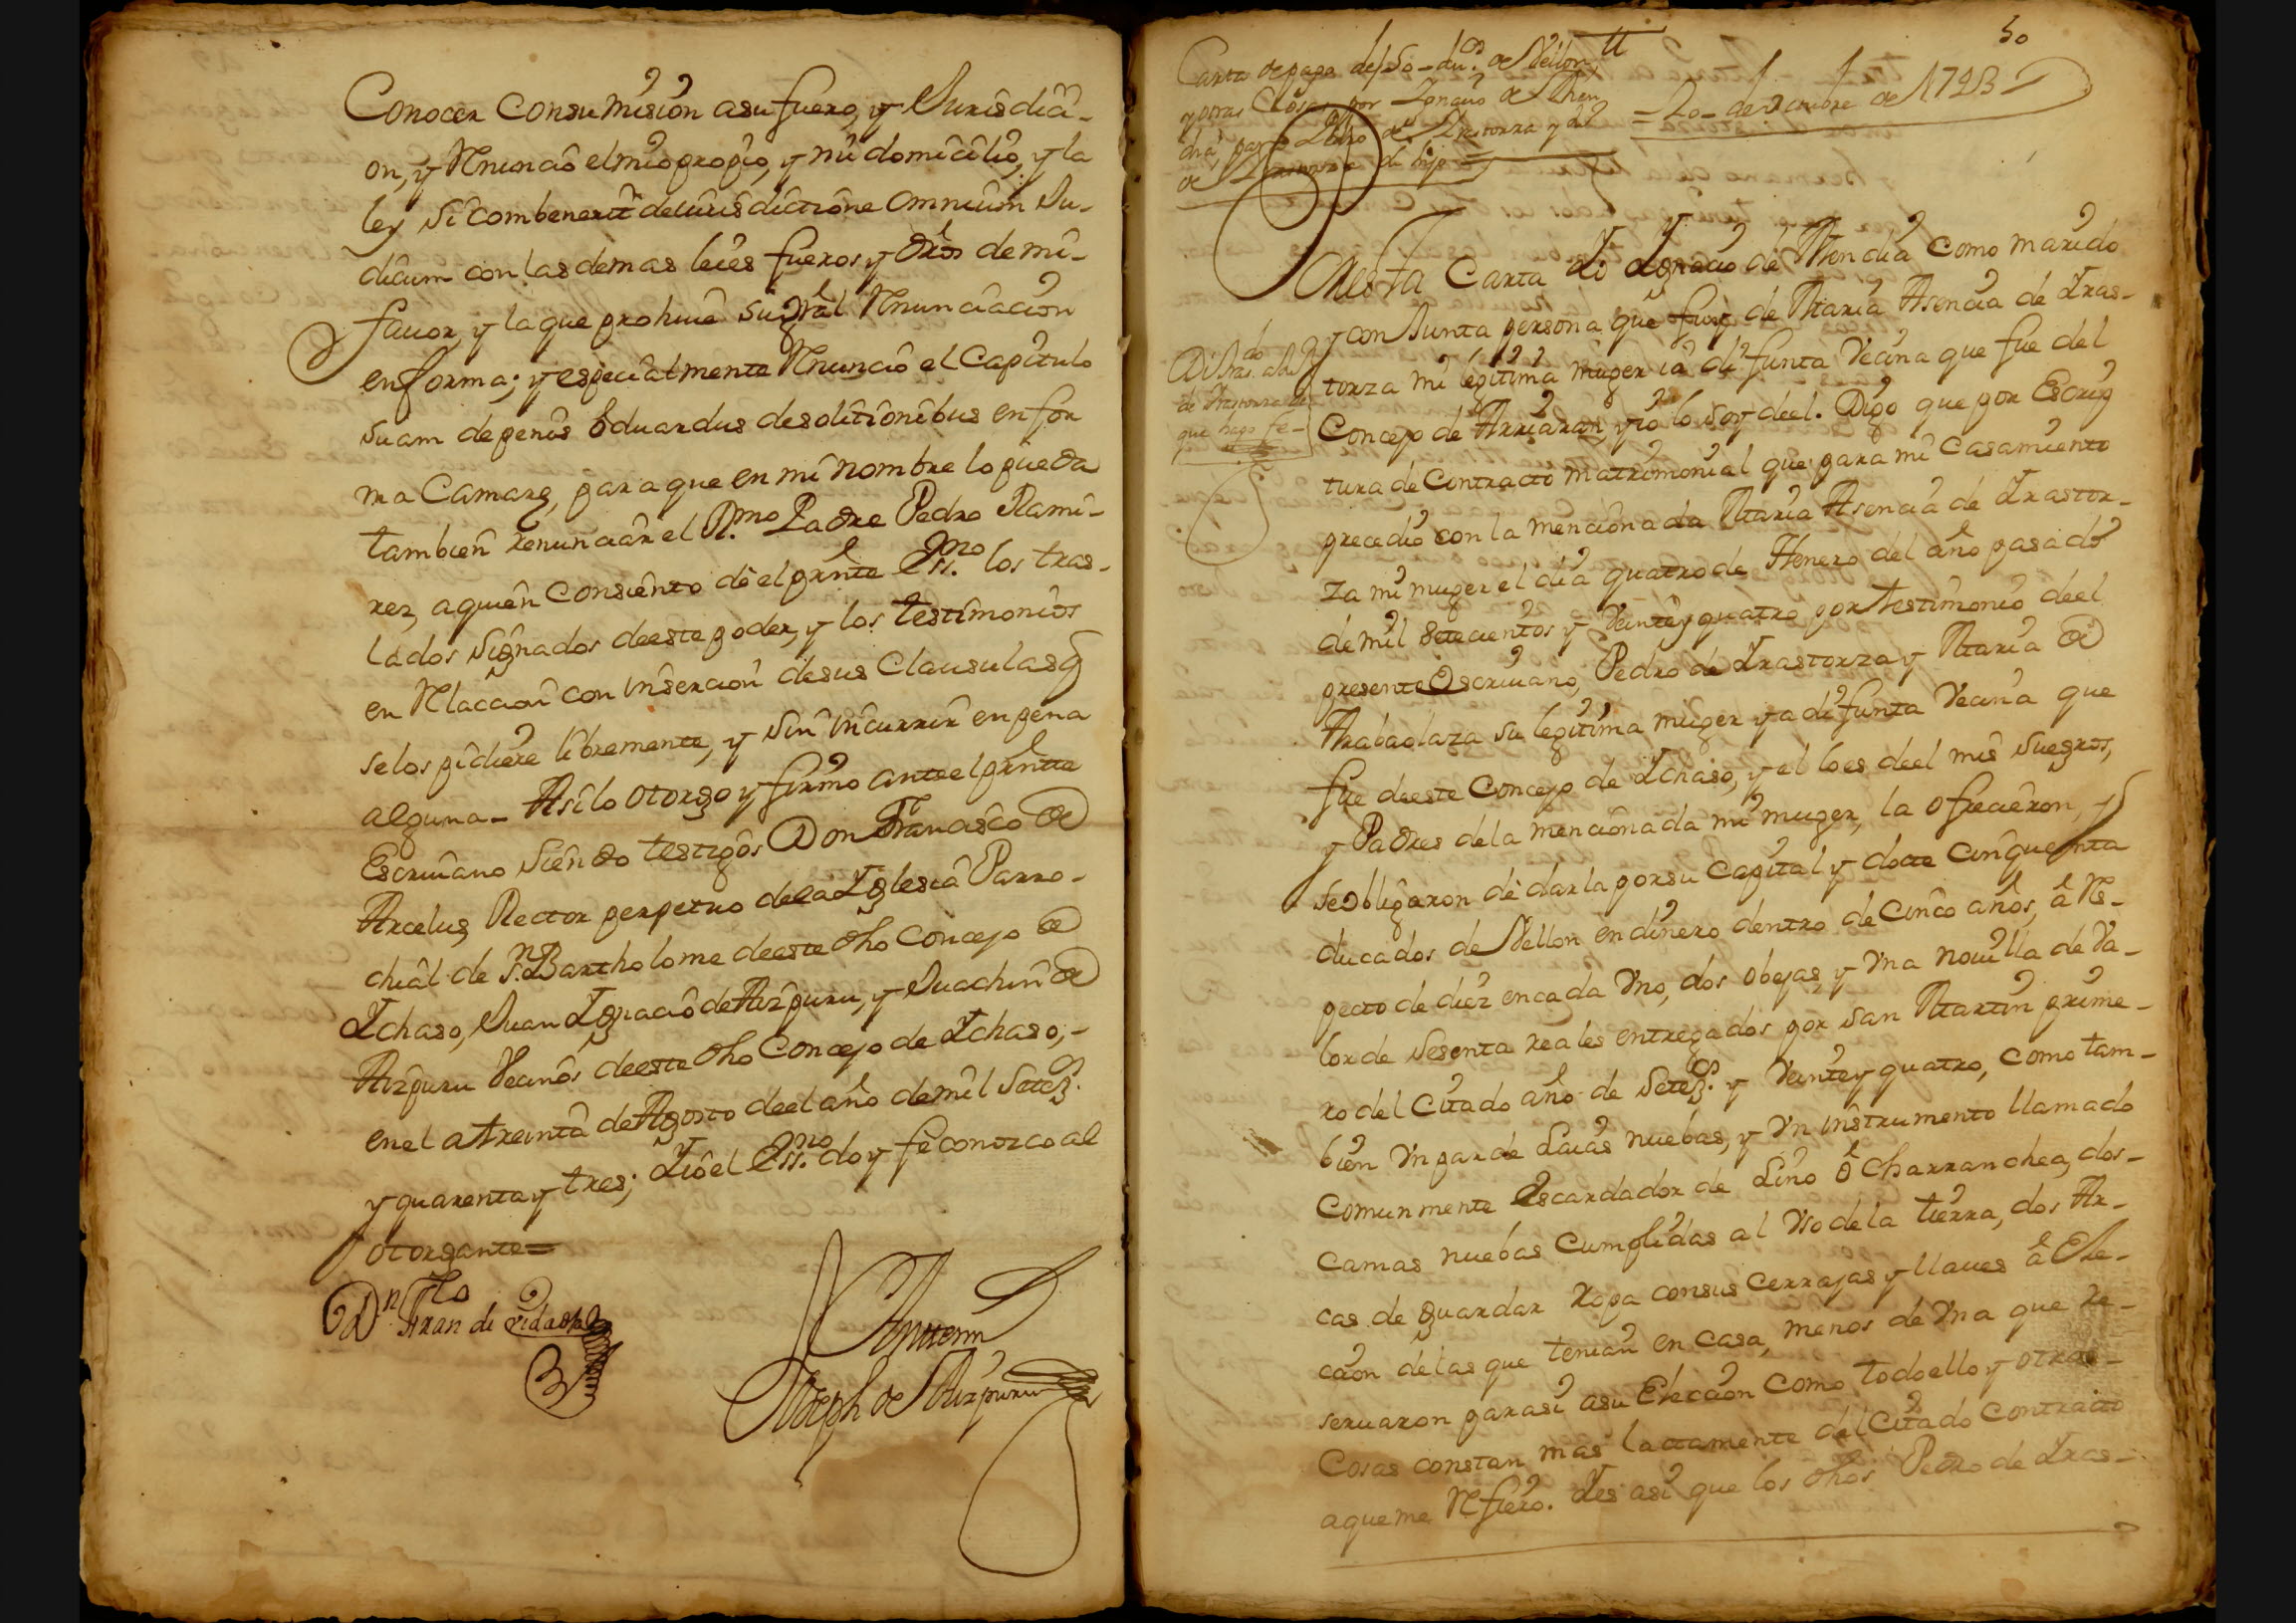 Conocer consumision asu fuero, y Jurisdici-
on, y Renuncio el mio propio, y mi domicilio, y la
ley si combenerit de iurisdictione omnium Ju-
dicum con las demas leies fueros y dros de mi
fauor, y la que prohiue su gral Renunciacion
en forma; y especialmente Renuncio el Capitulo
suam de penis Oduardus desolitionibus en for
ma Camarę, para que en mi nombre lo pueda
tambien renunciar el R.mo Padre Pedro Rami-
rez, aquien consiento dè el prnte Ess.no los tras-
lados signados deeste poder, y los testimonios
en Relaccion con insercion desus Clausulas q̃
selos pidiere libremente, y sin incurrir en pena
alguna- Asilo otorgo y firmo ante el prntte
Escriuano siendo testigos Don Francisco de
Arcelus, Rector perpetuo deela Iglesia Parro-
chial de S.n Bartholome deeste dho Concejo de
Ichaso, Juan Ignacio de Aizpuru, y Juachin de
Aizpuru Vecinos deeste dho Concejo de Ichaso,-
en el atreinta de Agosto deel año demil Setez.s
y quarenta y tres; Yo el Ess.no doy fe conozco al
otorgante=
Dn Fran di
Antemi
Joseph de Aizpuru
50
Carta de pago de 50 du.s de Vellon
y otras Cosas por Ignacio de Men
dia, para Pedro de Irastorza y
de Irastorza su hijo
20 de octubre de 1743
En esta Carta Yo Ygnacio de Mendia como marido
y conJunta persona que fui de Maria Asencia de Iras-
torza mi legitima muger ia difunta Vecina que fue del
Concejo de Arriaran, y io lo soy deel. Digo que por Escrip
tura de Contracto matrimonial que para mi Casamiento
precedio con la mencionada Maria Asencia de Irastor-
za mi muger el dia quatro de Henero del año pasado
de mil setecientos y Veinte y quatro por testimonio deel
presente Escriuano, Pedro de Irastorza y Maria de
Arabaolaza su legitima muger ya difunta Vecina que
fue deeste Concejo de Ichaso, y el loes deel mis suegros,
y Padres dela mencionada mi muger, la ofrecieron, y
se obligaron de darla por su Capital y dotte cinquenta
ducados de Vellon en dinero dentro de Cinco años, à Rs-
pecto de diez en cada Vno, dos obejas, y Vna nouilla de Va-
lor de Sesenta reales entregados por San Martin prime-
ro del Citado año de Setez.s y Veinte y quatro, como tam-
bien Vn par de Laias nuebas, y Vn instrumento llamado
Comunmente Escardador de Lino ò Charranchea, dos-
camas nuebas Cumplidas al Vso dela tierra, dos Ar-
cas de guardar ropa consus Cerrajas y llaues à Ele-
ccion delas que tenian en casa, menos de Vna que re-
seruaron parasi asu Eleccion como todoello y otras-
Cosas constan mas lactamente del Citado Contracto
aqueme Refiero. Yes asi que los dhos Pedro de Iras-
que hago fe-